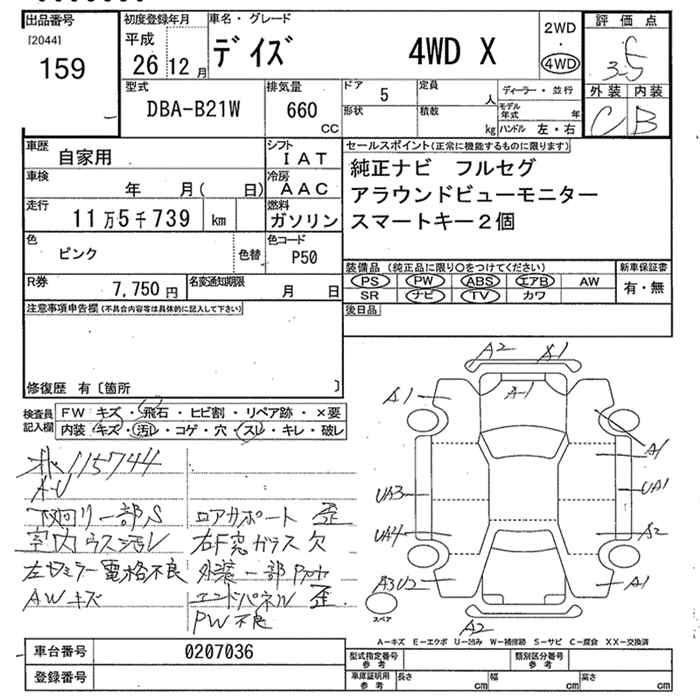 出品番号
[2044]
159
初度登録年月
平成
26 12 月
車名・グレード
デイズ 4WD X
2WD
・
4WD
評価点
3.5
外装 内装
C B
型式
DBA-B21W
排気量
660
CC
ドア
5
定員
人
ディーラー・並行
形状
積数
kg
モデル年式 年
ハンドル 左・右
車歴
自家用
シフト
IAT
車検
年 月( 日)
冷房
AAC
走行
11万5千739 km
燃料
ガソリン
色
ピンク
色替
色コード
P50
R券
7,750 円
名変通知期限
月 日
セールスポイント(正常に機能するものに限ります)
純正ナビ フルセグ
アラウンドビューモニター
スマートキー2個
装備品 (純正品に限り○をつけてください)
PS PW ABS エアB AW
SR ナビ TV カワ
新車保証書
有・無
後日品
注意事項申告欄(不具合内容等は具体的に記入して下さい)
修復歴 有〔箇所 〕
検査員記入欄
FW キズ・飛石・ヒビ割・リペア跡・×要
内装 キズ・汚レ・コゲ・穴・スレ・キレ・破レ
115744
下廻り一部S
室内ウス汚レ
左ドミラー電格不良
AWキズ
ロアサポート歪
右F窓ガラス欠
外装一部
エンドパネル歪
PW不良
A2 A1
A-1
A1
A1
UA3
UA1
UA4
A2
A3U2
A1
A2
スペア
A-キズ E-エクボ U-凹み W-補修跡 S-サビ C-腐食 XX-交換済
車台番号
0207036
登録番号
型式指定番号
参考
類別区分番号
参考
車庫証明用
参考
長さ cm
幅 cm
高さ cm